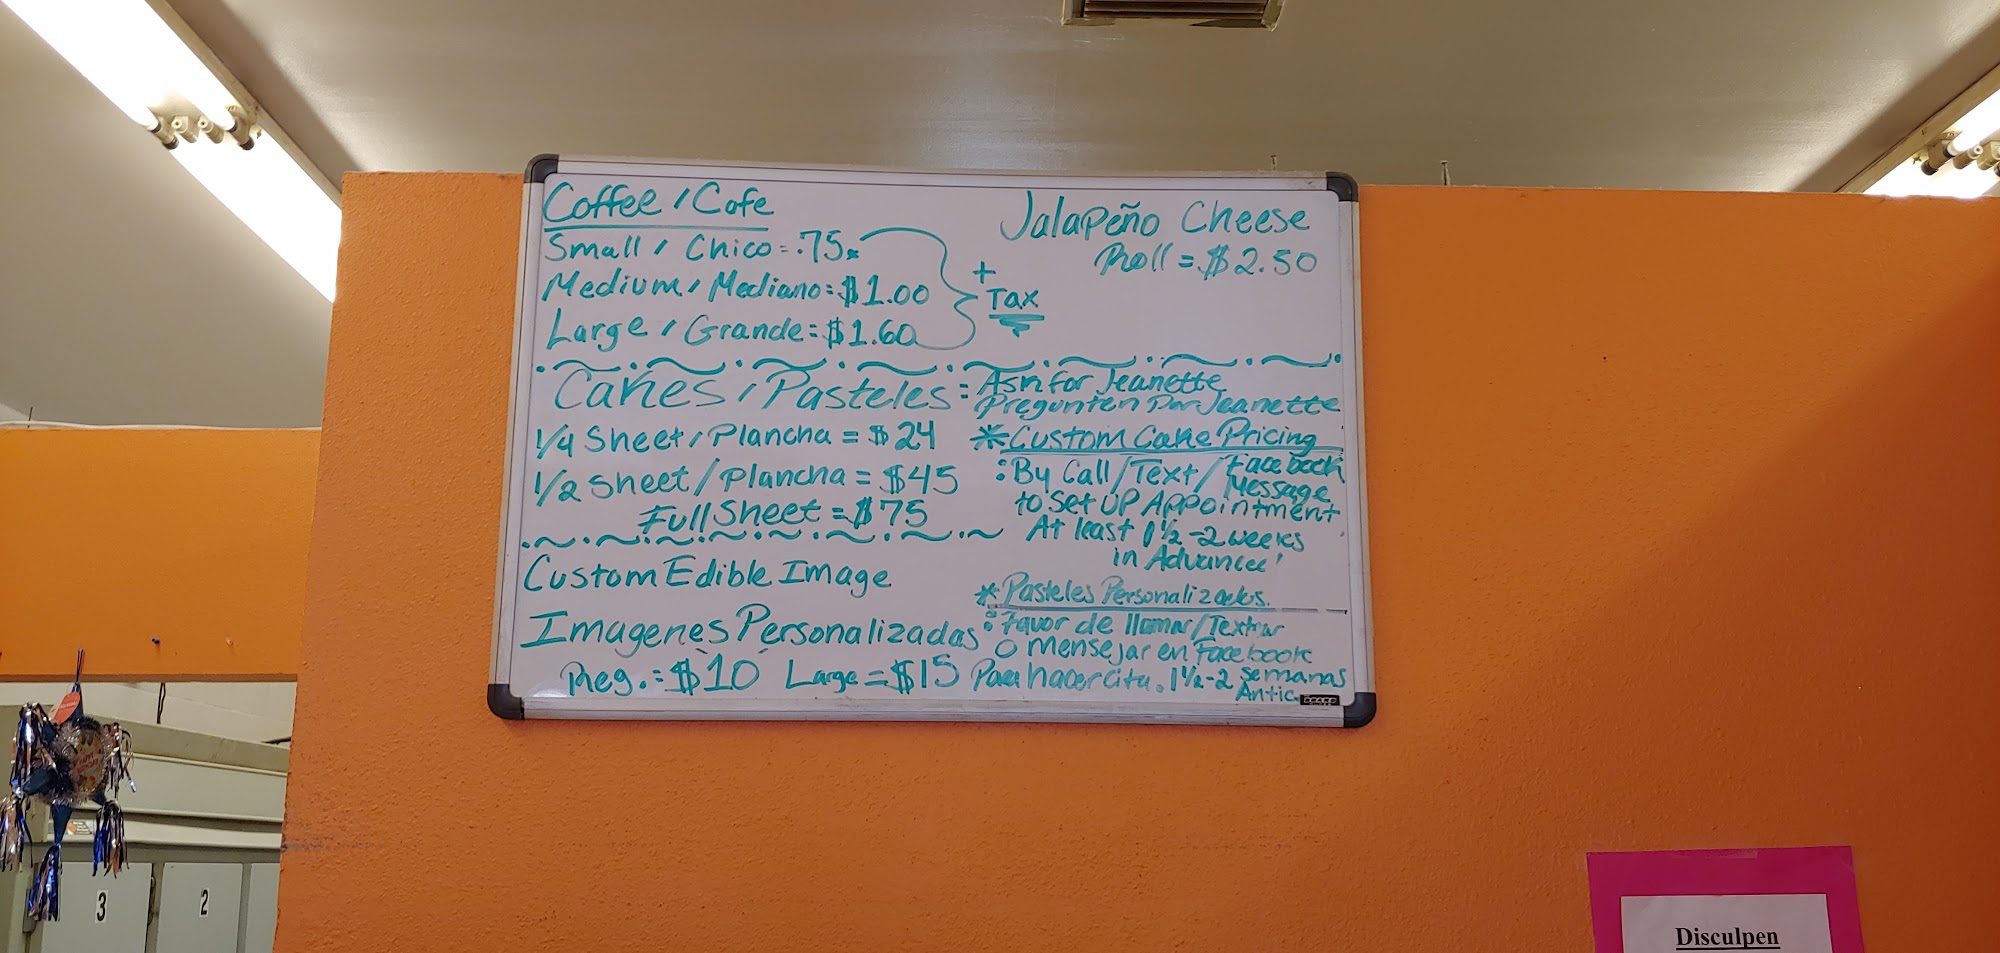 Coffee / Cafe
Small / Chico = .75
Medium / Mediano = $1.00
Large / Grande = $1.60
+
Tax
Jalapeño Cheese
Roll = $2.50
Cakes / Pasteles = Ask for Jeanette
Pregunten Por Jeanette
1/4 Sheet / Plancha = $24
1/2 Sheet / Plancha = $45
Full Sheet = $75
* Custom Cake Pricing
: By Call / Text / Facebook Message
to Set UP Appointment
At least 1 1/2 - 2 weeks
in Advance!
Custom Edible Image
Imagenes Personalizadas
Reg. = $10 Large = $15
* Pasteles Personalizados.
: Favor de llamar / Textear
O mensejar en Facebook
Para hacer cita. 1 1/2 - 2 semanas
Antic.
3
2
Disculpen